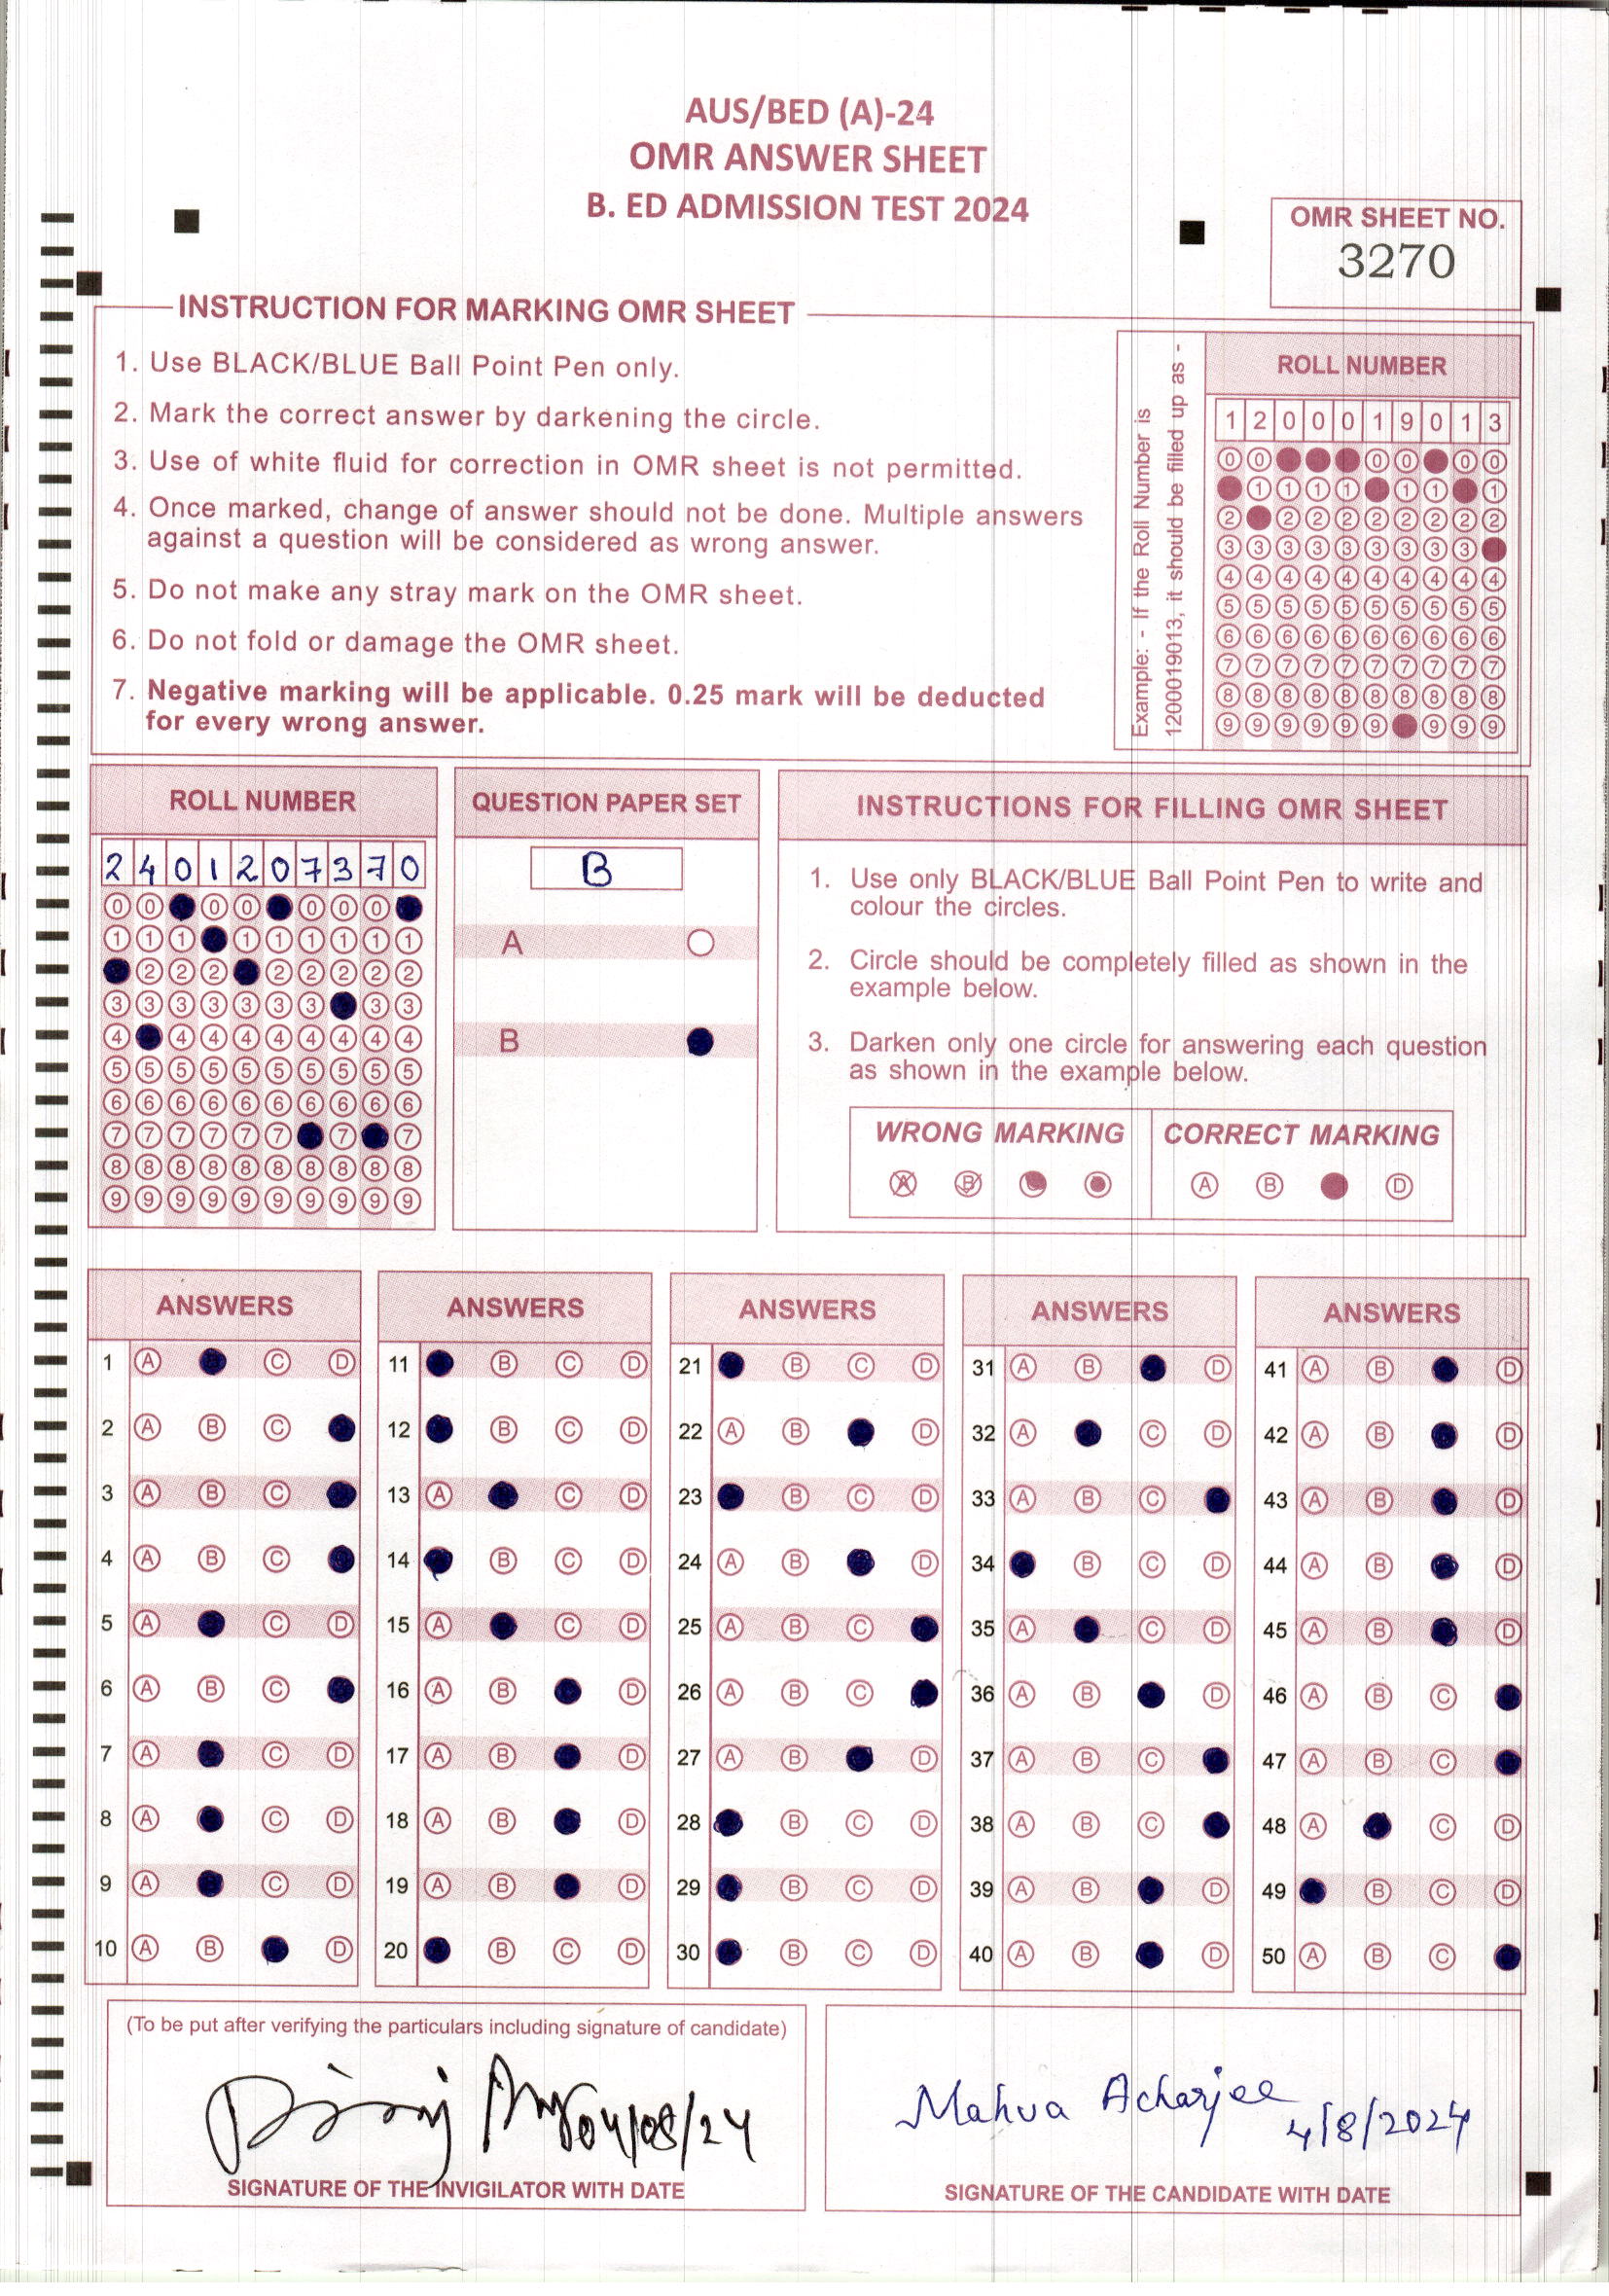 AUS/BED (A)-24
OMR ANSWER SHEET
B. ED ADMISSION TEST 2024
OMR SHEET NO.
3270
INSTRUCTION FOR MARKING OMR SHEET
1. Use BLACK/BLUE Ball Point Pen only.
2. Mark the correct answer by darkening the circle.
3. Use of white fluid for correction in OMR sheet is not permitted.
4. Once marked, change of answer should not be done. Multiple answers
against a question will be considered as wrong answer.
5. Do not make any stray mark on the OMR sheet.
6. Do not fold or damage the OMR sheet.
7. Negative marking will be applicable. 0.25 mark will be deducted
for every wrong answer.
Example: - If the Roll Number is
1200019013, it should be filled up as -
ROLL NUMBER
1 2 0 0 0 1 9 0 1 3
0 0 0 0 0 0
1 1 1 1 1 1 1
2 2 2 2 2 2 2 2 2
3 3 3 3 3 3 3 3 3
4 4 4 4 4 4 4 4 4 4
5 5 5 5 5 5 5 5 5 5
6 6 6 6 6 6 6 6 6 6
7 7 7 7 7 7 7 7 7 7
8 8 8 8 8 8 8 8 8 8
9 9 9 9 9 9 9 9 9
ROLL NUMBER
2 4 0 1 2 0 7 3 7 0
0 0 0 0 0 0 0
1 1 1 1 1 1 1 1 1
2 2 2 2 2 2 2 2
3 3 3 3 3 3 3 3 3
4 4 4 4 4 4 4 4 4
5 5 5 5 5 5 5 5 5 5
6 6 6 6 6 6 6 6 6 6
7 7 7 7 7 7 7 7
8 8 8 8 8 8 8 8 8 8
9 9 9 9 9 9 9 9 9 9
QUESTION PAPER SET
B
A
B
INSTRUCTIONS FOR FILLING OMR SHEET
1. Use only BLACK/BLUE Ball Point Pen to write and
colour the circles.
2. Circle should be completely filled as shown in the
example below.
3. Darken only one circle for answering each question
as shown in the example below.
WRONG MARKING
A B
CORRECT MARKING
A B D
ANSWERS
1 A C D
2 A B C
3 A B C
4 A B C
5 A C D
6 A B C
7 A C D
8 A C D
9 A C D
10 A B D
ANSWERS
11 B C D
12 B C D
13 A C D
14 B C D
15 A C D
16 A B D
17 A B D
18 A B D
19 A B D
20 B C D
ANSWERS
21 B C D
22 A B D
23 B C D
24 A B D
25 A B C
26 A B C
27 A B D
28 B C D
29 B C D
30 B C D
ANSWERS
31 A B D
32 A C D
33 A B C
34 B C D
35 A C D
36 A B D
37 A B C
38 A B C
39 A B D
40 A B D
ANSWERS
41 A B D
42 A B D
43 A B D
44 A B D
45 A B D
46 A B C
47 A B C
48 A C D
49 B C D
50 A B C
(To be put after verifying the particulars including signature of candidate)
04/08/24
SIGNATURE OF THE INVIGILATOR WITH DATE
Mahua Acharjee
4/8/2024
SIGNATURE OF THE CANDIDATE WITH DATE